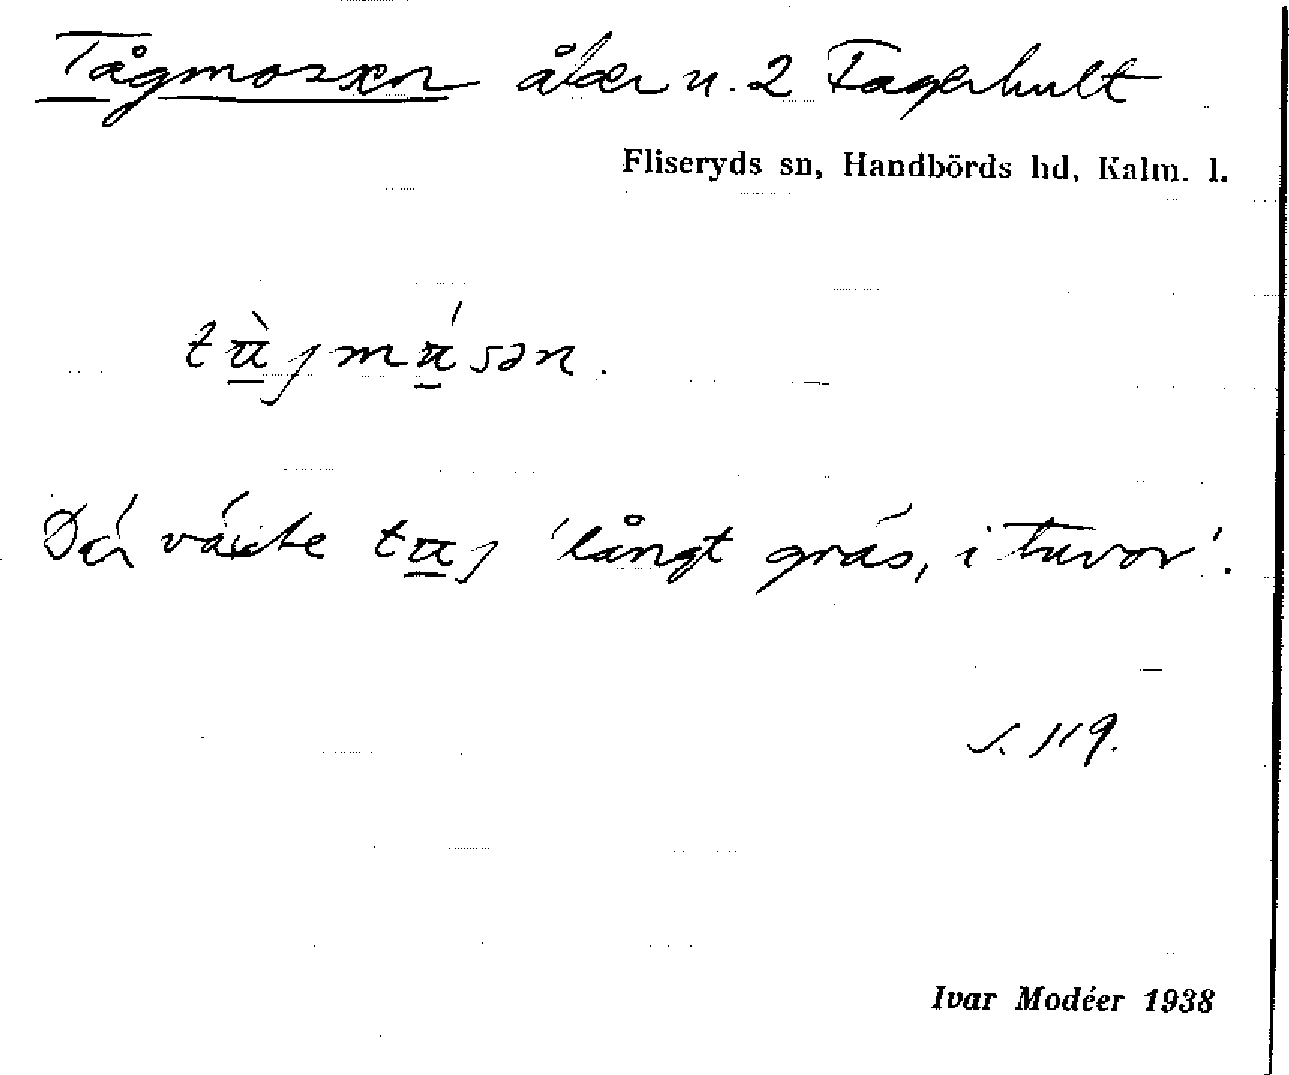 Tågmossen åker u. 2 Fagerhult
Fliseryds sn, Handbörds hd, Kalm. l.
Där växte 'långt gräs, i tuvor'.
s. 119.
Ivar Modéer 1938